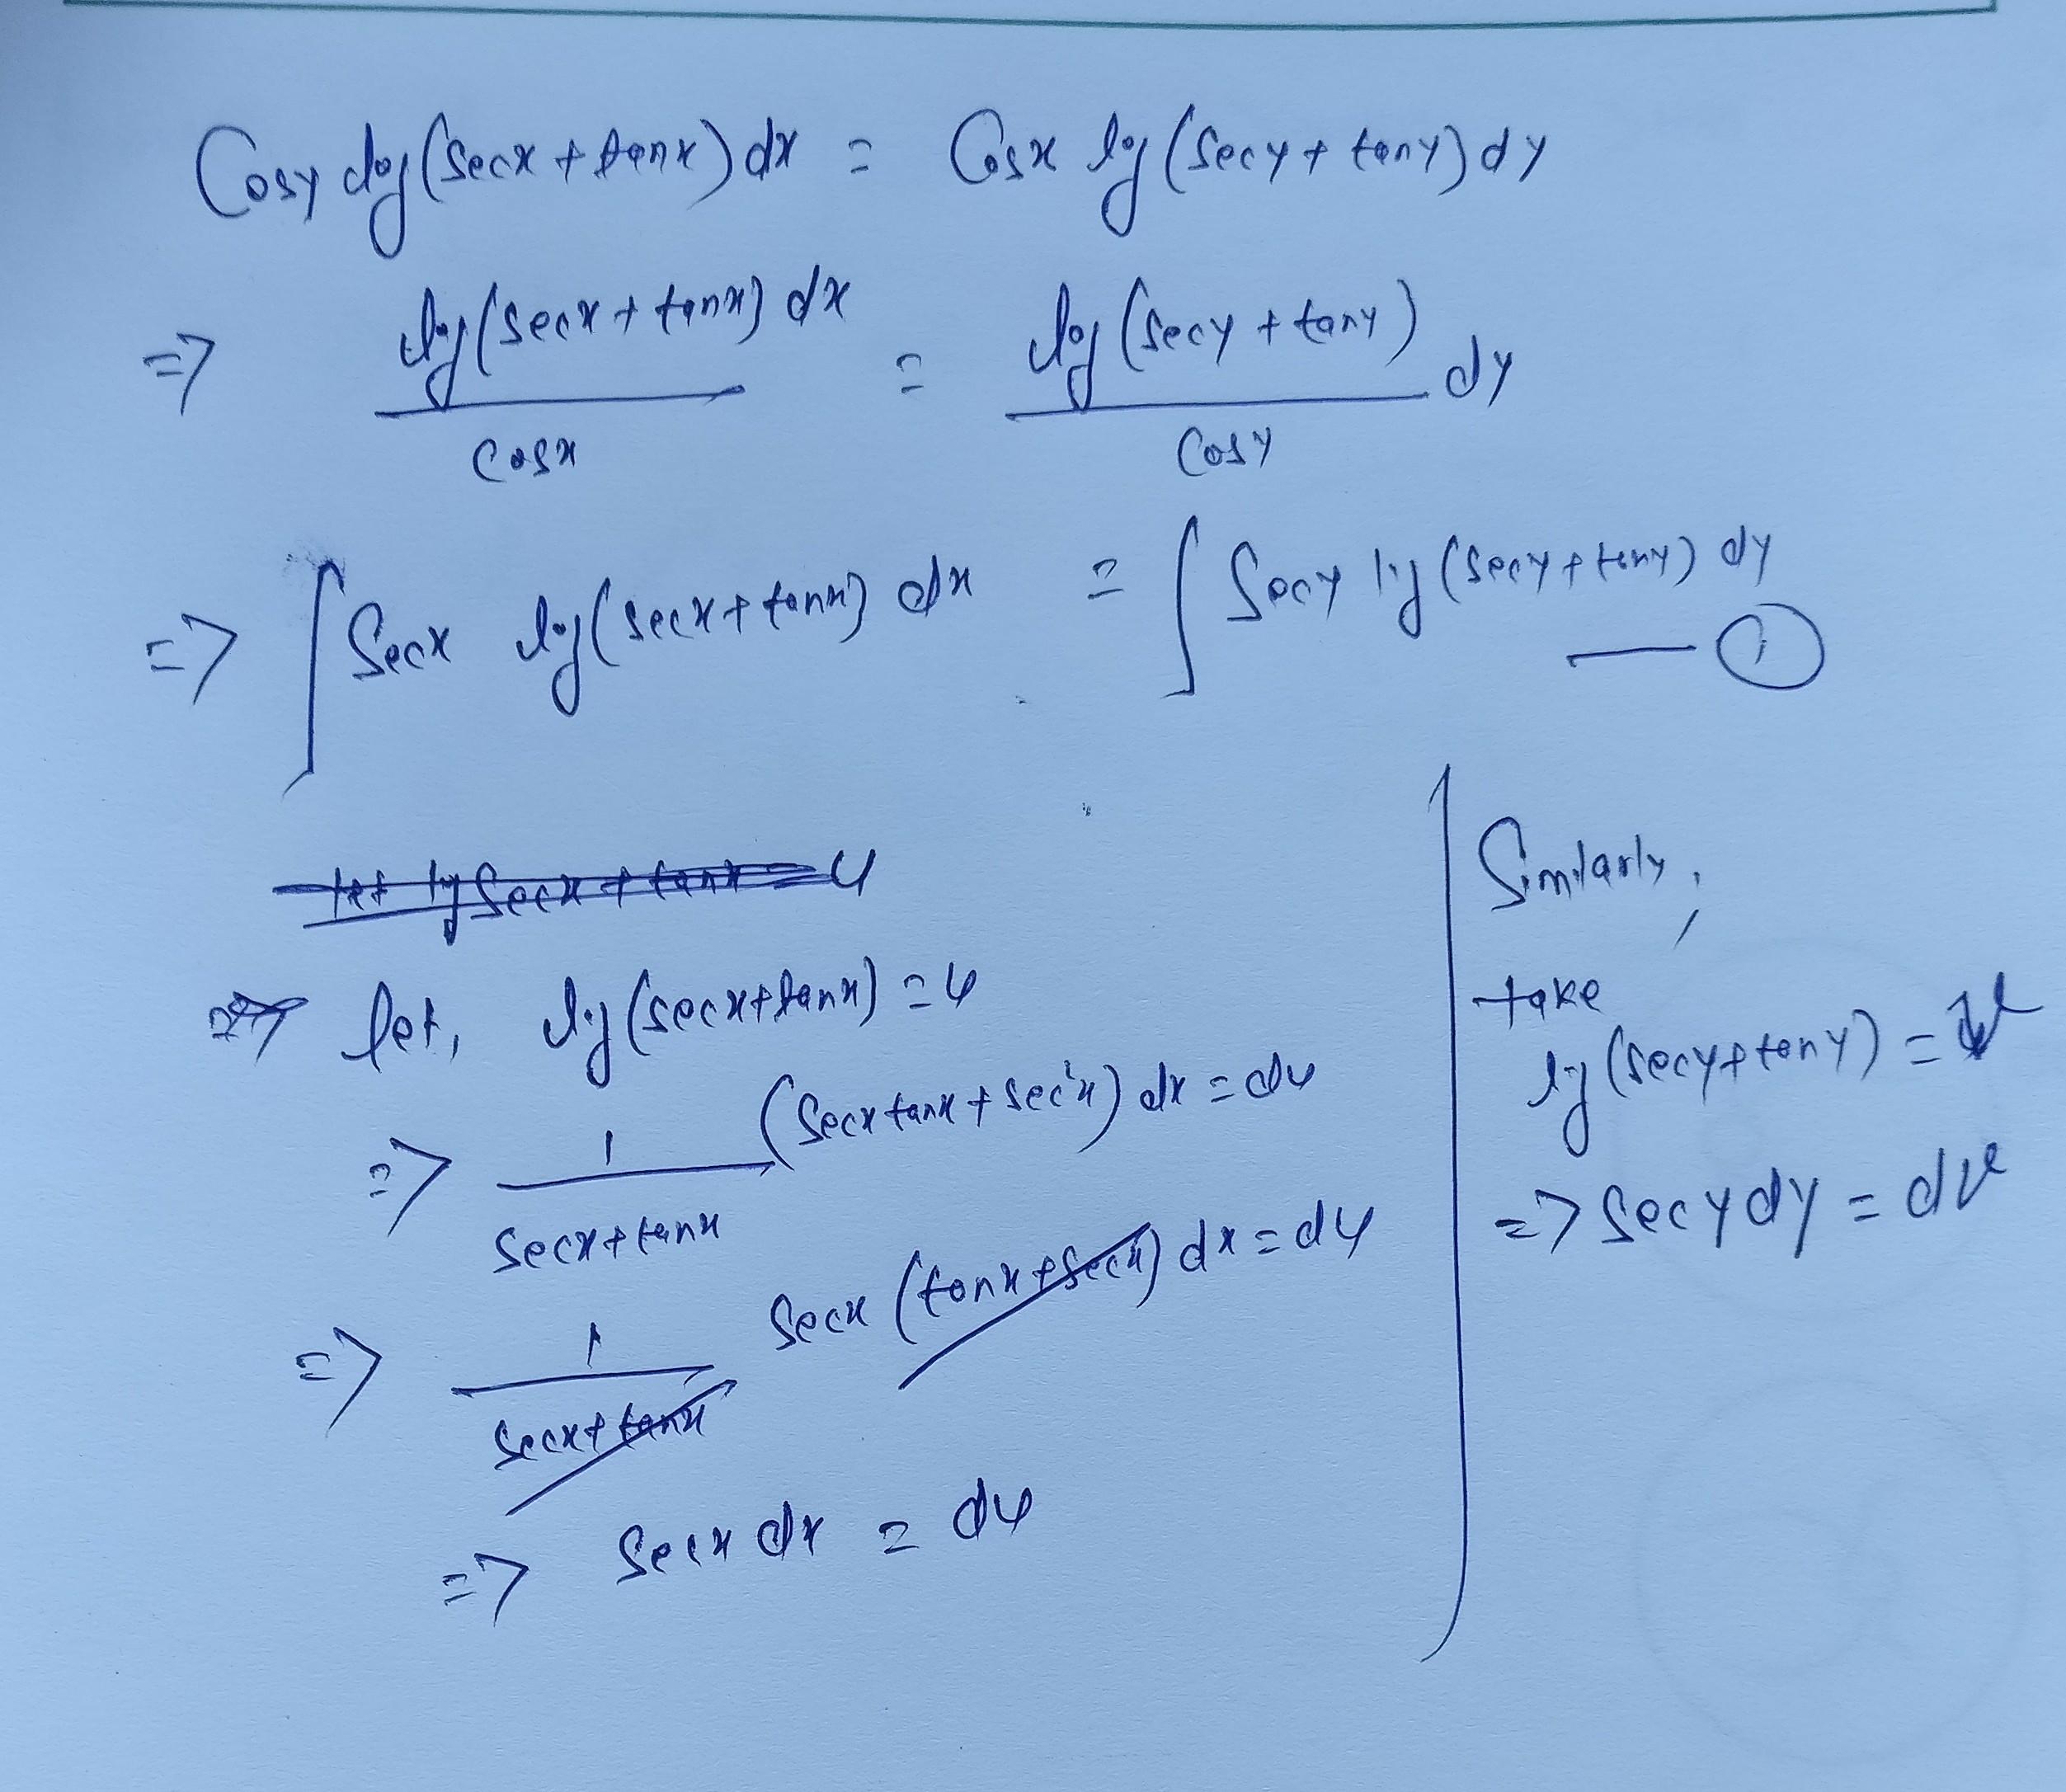 Cosy log(Secx + tanx) dx = Cosx log (Secy + tany) dy
=> log(secx + tanx) dx / cosx = log (Secy + tany) / Cosy dy
=> ∫ Secx log(secx + tanx) dx = ∫ Secy log (Secy + tany) dy — ①
let log Secx + tanx = u
=> let, log(secx+tanx) = u
=> 1 / secx + tanx (Secx tanx + sec²x) dx = du
=> 1 / secx + tanx Secx (tanx + secx) dx = du
=> Secx dx = du
Similarly,
take
log (Secy + tany) = v
=> Secy dy = dv